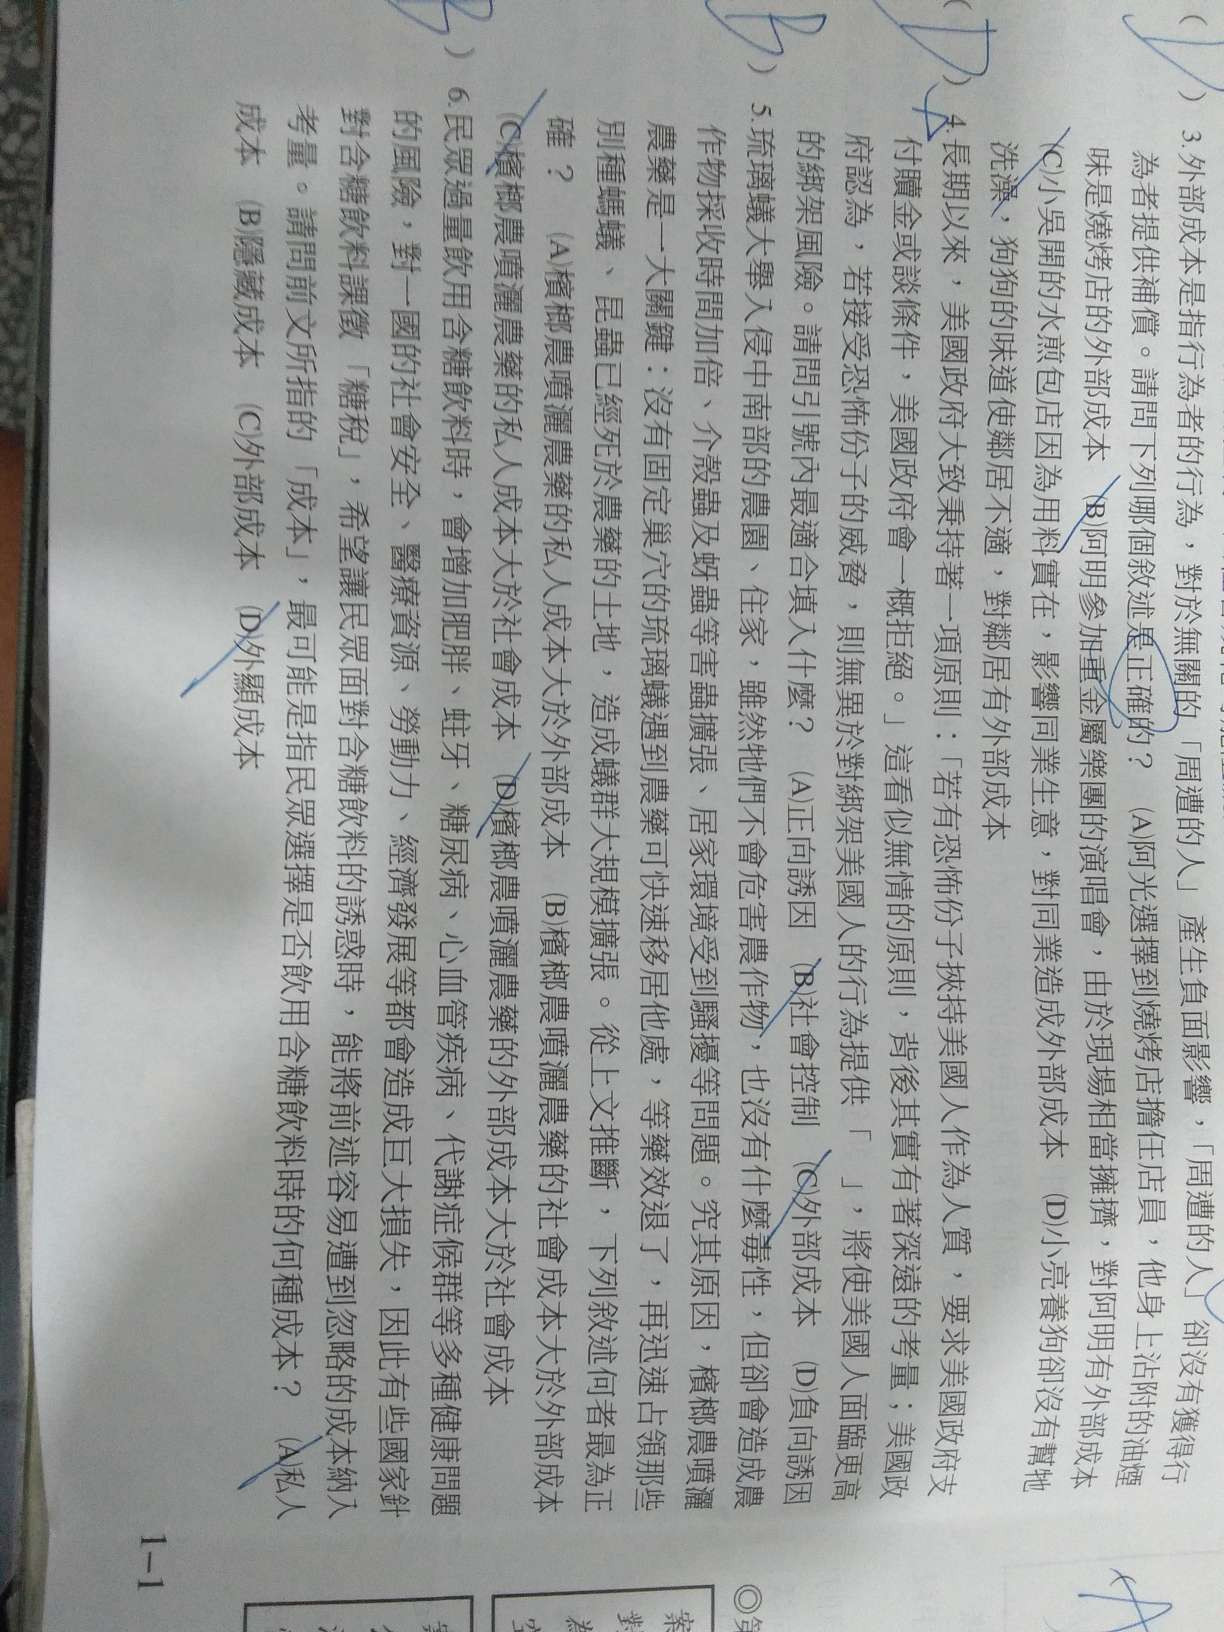 ( D ) 3.外部成本是指行為者的行為，對於無關的「周遭的人」產生負面影響，「周遭的人」卻沒有獲得行
為者提供補償。請問下列哪個敘述是正確的？ (A)阿光選擇到燒烤店擔任店員，他身上沾附的油煙
味是燒烤店的外部成本 (B)阿明參加重金屬樂團的演唱會，由於現場相當擁擠，對阿明有外部成本
(C)小吳開的水煎包店因為用料實在，影響同業生意，對同業造成外部成本 (D)小亮養狗卻沒有幫牠
洗澡，狗狗的味道使鄰居不適，對鄰居有外部成本
( D ) 4.長期以來，美國政府大致秉持著一項原則：「若有恐怖份子挾持美國人作為人質，要求美國政府支
付贖金或談條件，美國政府會一概拒絕。」這看似無情的原則，背後其實有著深遠的考量；美國政
府認為，若接受恐怖份子的威脅，則無異於對綁架美國人的行為提供「 」，將使美國人面臨更高
的綁架風險。請問引號內最適合填入什麼？ (A)正向誘因 (B)社會控制 (C)外部成本 (D)負向誘因
( B ) 5.琉璃蟻大舉入侵中南部的農園、住家，雖然牠們不會危害農作物，也沒有什麼毒性，但卻會造成農
作物採收時間加倍、介殼蟲及蚜蟲等害蟲擴張、居家環境受到騷擾等問題。究其原因，檳榔農噴灑
農藥是一大關鍵：沒有固定巢穴的琉璃蟻遇到農藥可快速移居他處，等藥效退了，再迅速占領那些
別種螞蟻、昆蟲已經死於農藥的土地，造成蟻群大規模擴張。從上文推斷，下列敘述何者最為正
確？ (A)檳榔農噴灑農藥的私人成本大於外部成本 (B)檳榔農噴灑農藥的社會成本大於外部成本
(C)檳榔農噴灑農藥的私人成本大於社會成本 (D)檳榔農噴灑農藥的外部成本大於社會成本
( B ) 6.民眾過量飲用含糖飲料時，會增加肥胖、蛀牙、糖尿病、心血管疾病、代謝症候群等多種健康問題
的風險，對一國的社會安全、醫療資源、勞動力、經濟發展等都會造成巨大損失，因此有些國家針
對含糖飲料課徵「糖稅」，希望讓民眾面對含糖飲料的誘惑時，能將前述容易遭到忽略的成本納入
考量。請問前文所指的「成本」，最可能是指民眾選擇是否飲用含糖飲料時的何種成本？ (A)私人
成本 (B)隱藏成本 (C)外部成本 (D)外顯成本
1-1
A
◎第